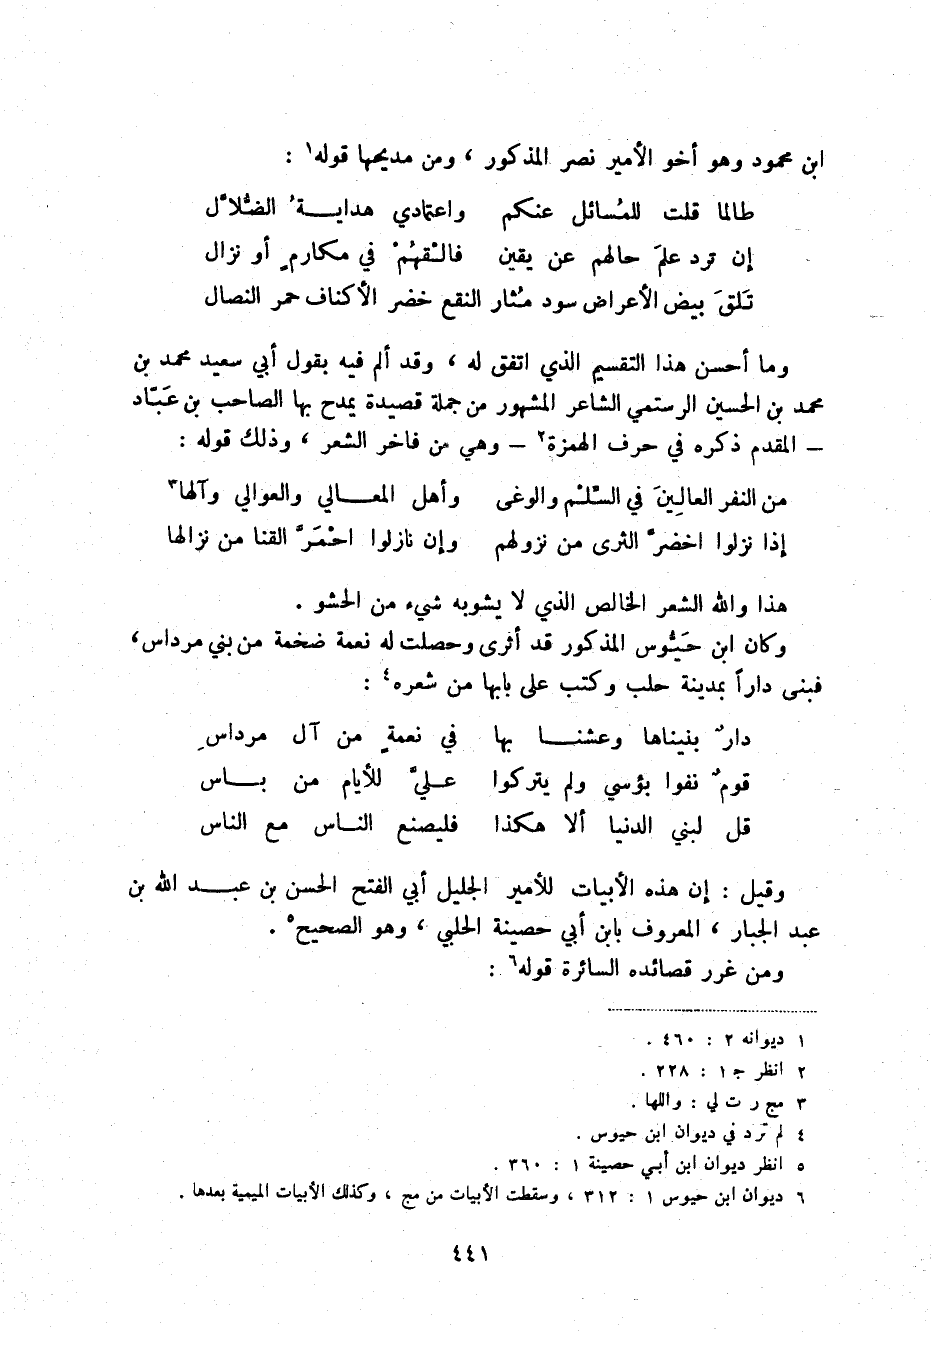 ابن محمود وهو أخو الأمير نصر المذكور ، ومن مديحها قوله١ :
طالما قلت للمُسائل عنكم واعتمادي هدايــة ُ الضُّلاَّل
إن ترد علمَ حالهم عن يقين فالـْقهُمْ في مكارمٍ أو نزال
تَلقَ بيض الأعراض سود مُثار النقع خضر الأكناف حمر النصال
وما أحسن هذا التقسيم الذي اتفق له ، وقد ألم فيه بقول أبي سعيد محمد بن
محمد بن الحسين الرستمي الشاعر المشهور من جملة قصيدة يمدح بها الصاحب بن عَبّاد
– المقدم ذكره في حرف الهمزة٢ – وهي من فاخر الشعر ، وذلك قوله :
من النفر العالِينَ في السِّلْم والوغى وأهل المعــالي والعوالي وآلها٣
إذا نزلوا اخضرَّ الثرى من نزولهم وإن نازلوا احْمَرَّ القنا من نزالها
هذا والله الشعر الخالص الذي لا يشوبه شيء من الحشو .
وكان ابن حَيُّوس المذكور قد أثرى وحصلت له نعمة ضخمة من بني مرداس ،
فبنى داراً بمدينة حلب وكتب على بابها من شعره٤ :
دارٌ بنيناها وعشنــا بها في نعمةٍ من آل مرداسِ
قومٌ نفوا بؤسي ولم يتركوا علـيَّ للأيام من بــاس
قل لبني الدنيا ألا هكذا فليصنع النــاس مع الناس
وقيل : إن هذه الأبيات للأمير الجليل أبي الفتح الحسن بن عبــد الله بن
عبد الجبار ، المعروف بابن أبي حصينة الحلبي ، وهو الصحيح٥ .
ومن غرر قصائده السائرة قوله٦ :
١ ديوانه ٢ : ٤٦٠ .
٢ انظر ج ١ : ٢٢٨ .
٣ مج ر ت لي : واللها .
٤ لم ترد في ديوان ابن حيوس .
٥ انظر ديوان ابن أبي حصينة ١ : ٣٦٠ .
٦ ديوان ابن حيوس ١ : ٣١٢ ، وسقطت الأبيات من مج ، وكذلك الأبيات الميمية بعدها .
٤٤١